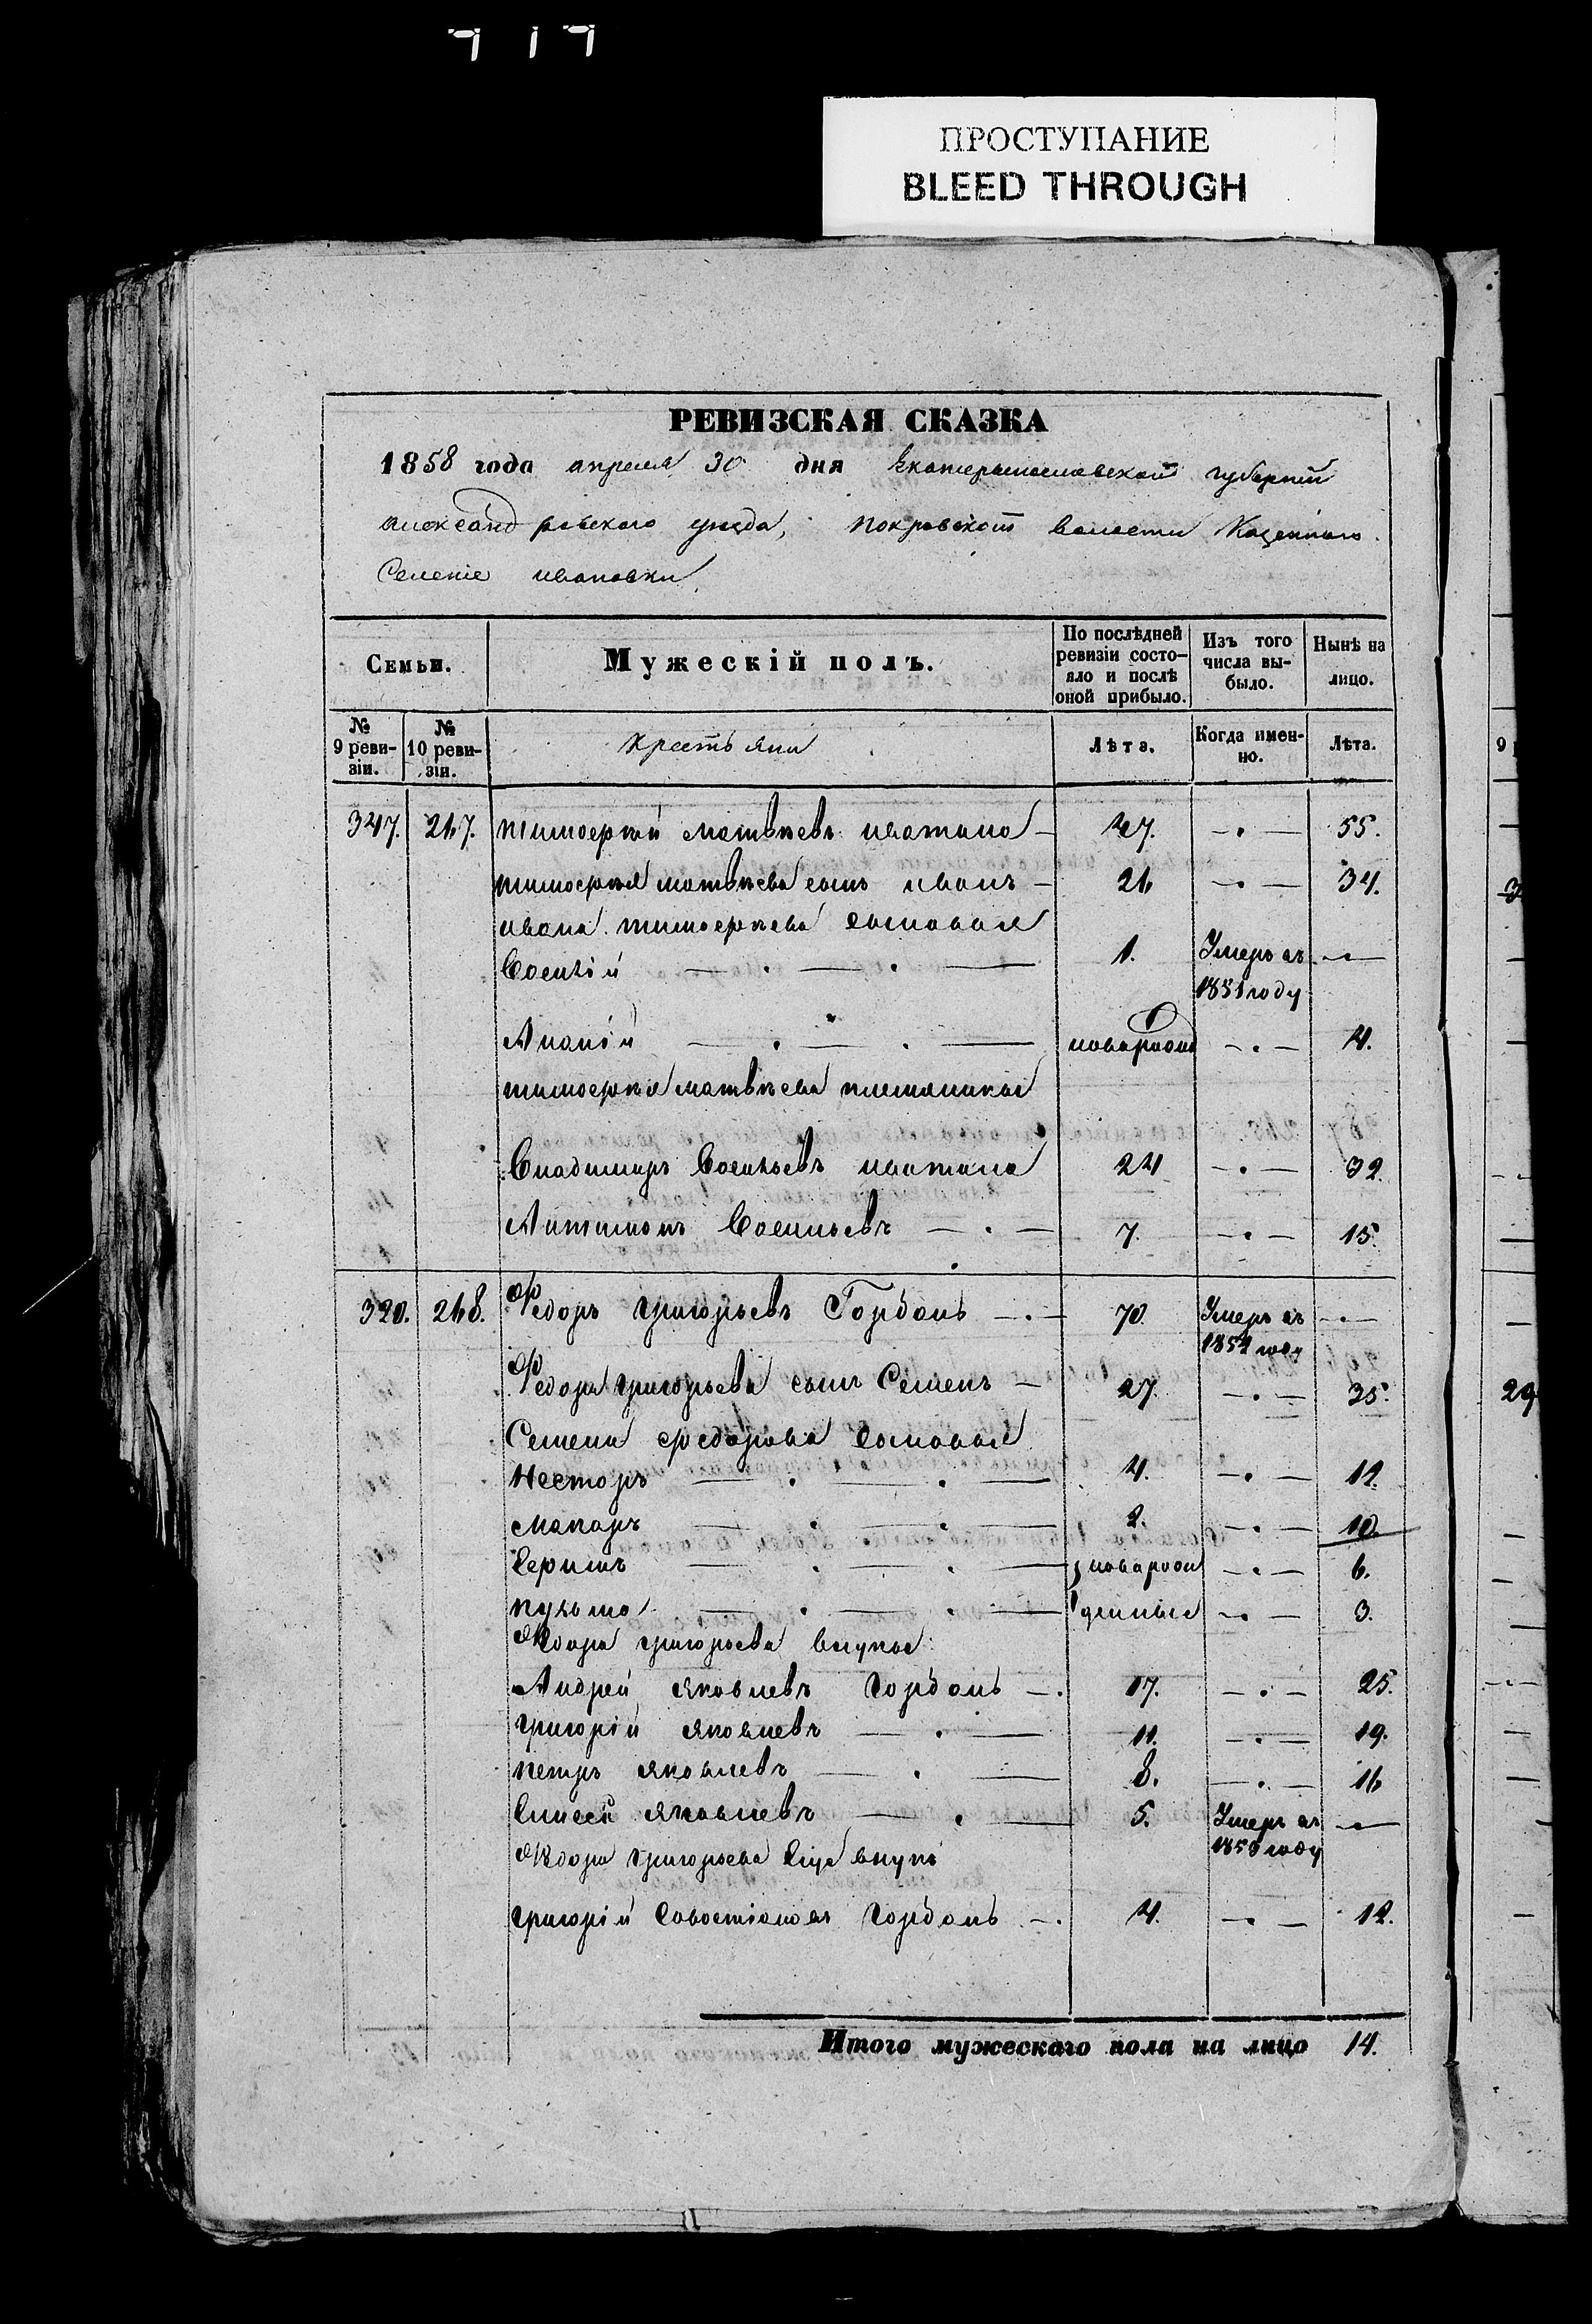 717
ПРОСТУПАНИЕ
BLEED THROUGH
РЕВИЗСКАЯ СКАЗКА
1858 года апреля 30 дня Екатеринославской губернiи
александровского уезда, Покровской волости Казенного
Селенiе ивановки
Семьи.
Мужескiй полъ.
По послѣдней ревизiи состо-яло и послѣ оной прибыло.
Изъ того числа вы-было.
Нынѣ на лицо.
№ 9 реви-зiи.
№ 10 реви-зiи.
Крестьяни
Лѣта.
Когда имен-но.
Лѣта.
347. 247. тимофей матвѣевъ 47. 55.
тимофея матвѣева сынъ иванъ 26 34.
ивана тимофеева сыновья
Василiй 1. Умеръ въ 1851 году
Ананiй новорожд 4.
тимофея матвѣева племянники
Владимиръ Васильевъ 24 32.
Антимонъ Васильевъ 7. 15.
320. 248. Федоръ григорьевъ Горбань 70. Умеръ въ 1852 году
Федора григорьева сынъ Семенъ 27. 35.
Семена федорова сыновья
Несторъ 4. 12.
Макаръ 2. 10.
новорож 6.
Кузьма денные 3.
Федора григорьева внуки
Андрей яковлевъ Горбань 17. 25.
григорiй яковлевъ 11. 19.
петръ яковлевъ 8. 16
яковлевъ 5. Умеръ въ 1850 году
Федора григорьева еще внукъ
григорiй Савостiановъ Горбань 4. 12.
Итого мужескаго пола на лицо 14.